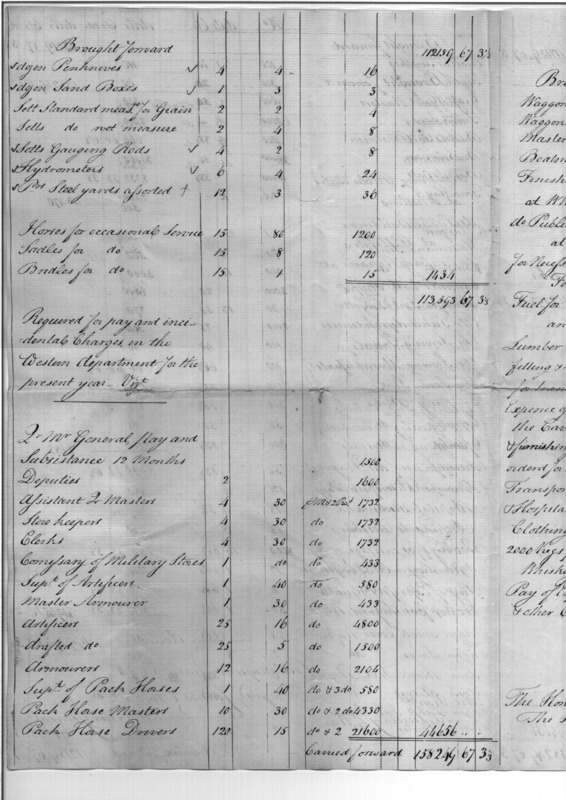 Brought forward 112159 67 33
dozen Penknives 4 4 16
dozen Sand Boxes 1 3 3
Sett Standard meas.r for Grain 2 2 4
Setts do not measure 2 4 8
Setts Gauging Rods 4 2 8
Hydrometers 6 4 24
Prs Steel yards assorted † 12 3 36
Horses for occasional Service 15 80 1200
Sadles for do 15 8 120
Bridles for do 15 1 15 1434
113,593 67 33
Required for pay and inci-
dental Charges in the
Western department for the
present year — Vizt
Qr Mr General pay and
Subsistance 12 Months 1500
Deputies 2 1600
Assistant Qr Masters 4 30 1732
Storekeepers 4 30 do 1732
Clerks 4 30 do 1732
Comissary of Military Stores 1 do do 433
Supt. of Artificers 1 40 do 580
Master Armourer 1 30 do 433
Artificers 25 16 do 4800
drafted do 25 5 do 1500
Armourers 12 16 do 2104
Supt. of Pack Horses 1 40 do & 3 do 580
Pack Horse Masters 10 30 do & 2 do 4330
Pack Horse Drivers 120 15 do & 2 21600 44656
Carried forward 158249 67 33
Bro
Waggon
Waggon
Master
Finish
at W
do Publi
at
for
Fo
Fuel for
an
Lumber
fitting &
for
Expence of
the
& furnishin
orders for
Transpor
& Hospita
Clothing
2000
Whisk
Pay of
& other
The Hon
The